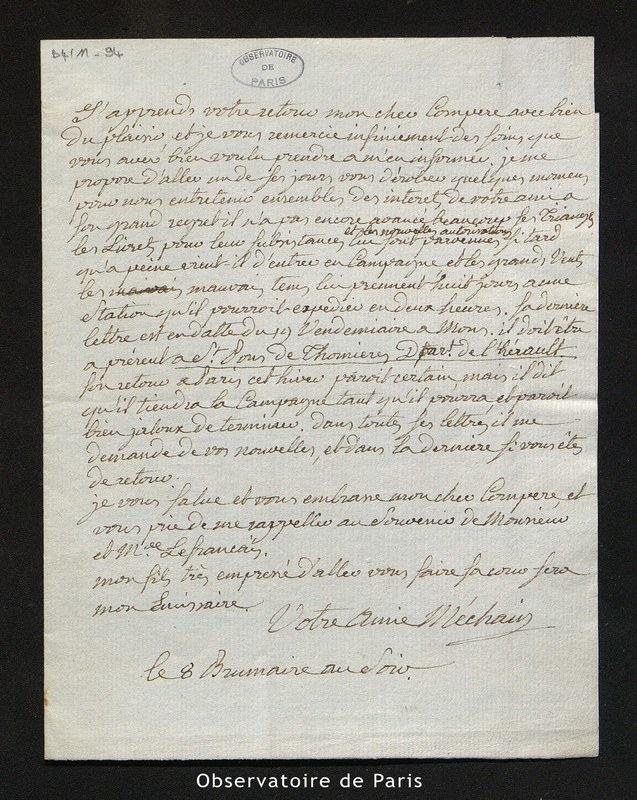 B4/11 - 94
OBSERVATOIRE
DE
PARIS
J'apprends votre retour mon cher Compere avec bien
du plaisir et je vous remercie infiniment des soins que
vous avez bien voulu prendre a m'en informer. je me
propose d'aller un de ses jours vous dérober quelques momens
pour nous entretenir ensembles des interets de votre ami a
son grand regret il n'a pas encore avancé beaucoup ses Travaux
et les nouvelles autorisations
les Livrets pour leur subsistances lui sont parvenues si tard
qu'a peine vient-il d'entrer en Campagne et les grands Vents
les mauvais mauvais tems lui prennent huit jours a une
station qu'il pourroit expedier en deux heures. sa derniere
lettre est en datte du 19 Vendemiaire a Mons. il doit être
a présent a St. Pons de Thomieres Dpart. de l'hérault
son retour a Paris cet hiver paroit certain mais il dit
qu'il tiendra la Campagne tant qu'il pourra et paroit
bien jaloux de terminer. dans toutes ses lettres il me
demande de vos nouvelles, et dans la derniere si vous êtes
de retour.
je vous salue et vous embrasse mon cher Compere, et
vous prie de me rappeller au Souvenir de Monsieur
et Mde Lefrançais.
mon fils très empressé d'aller vous faire sa cour sera
mon Emissaire.
Votre amie Méchain
le 8 Brumaire au Soir.
Observatoire de Paris